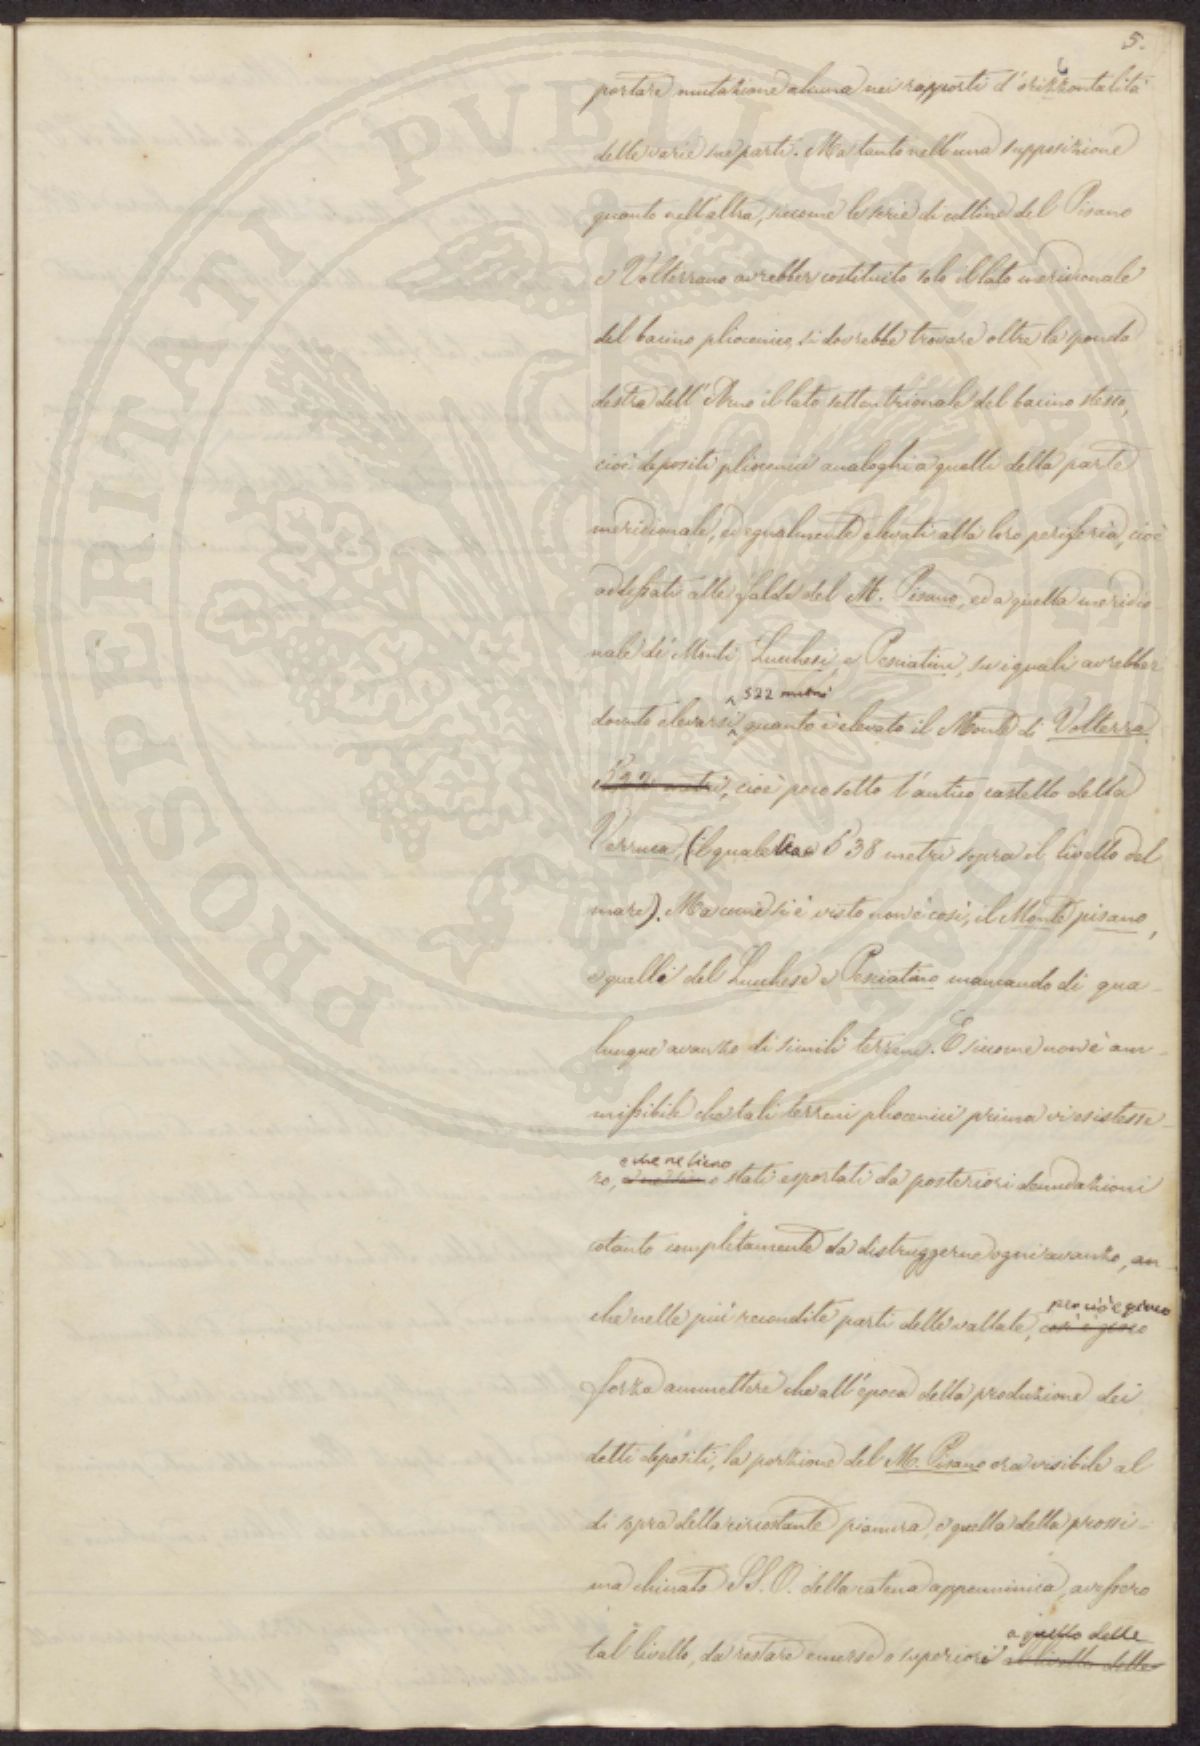 5.
portare mutazione alcuna nei rapporti d'orizzontalità
delle varie sue parti. Ma tanto nell'una supposizione
quanto nell'altra, siccome le serie di colline del Pisano
e Volterrano avrebber costituito solo il lato meridionale
del bacino pliocenico, si dovrebbe trovare oltre la sponda
destra dell'Arno il lato settentrionale del bacino stesso,
cioè depositi pliocenici analoghi a quelli della parte
meridionale, ed egualmente elevati alla loro periferia, cioè
addossati alle falde del M. Pisano, ed a quella meridio-
nale di Monti Lucchesi e Pesciatini, su i quali avrebber
522 metri
dovuto elevarsi, quanto è elevato il Monte di Volterra
522 metri, cioè poco sotto l'antico castello della
Verruca, (il quale è a 538 metri sopra il livello del
mare). Ma come si è visto non è così, il Monte pisano,
e quelli del Lucchese e Pesciatino mancando di qua-
lunque avanzo di simili terreni. E siccome non è am-
missibile che tali terreni pliocenici prima vi esistesse-
e che ne sieno
ro, stati esportati da posteriori denudazioni
cotanto completamente da distruggerne ogni avanzo, an-
che nelle più recondite parti delle vallate,
perciò è giuoco
forza ammettere che all'epoca della produzione dei
detti depositi, la porzione del M. Pisano ora visibile al
di sopra della circostante pianura, e quella della prossi-
ma chinata SS.O. della catena appenninica, avessero
a quello delle
tal livello, da restare emerse o superiori al livello delle
PROSPERITATI PVBLICAE AVGENDAE